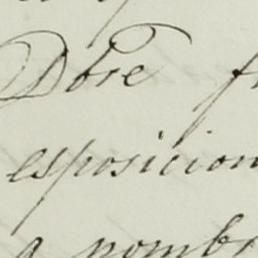 Dbre f
esposicion
a nombr